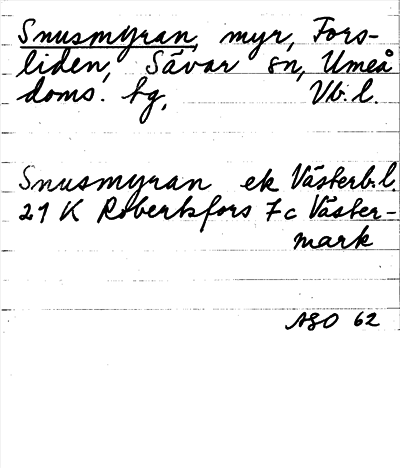 Snusmyran, myr, Fors-
liden, Sävar sn, Umeå
doms. tg, Vb. l.
Snusmyran ek Västerb. l.
21 K Robertsfors 7c Väster-
mark
ASO 62